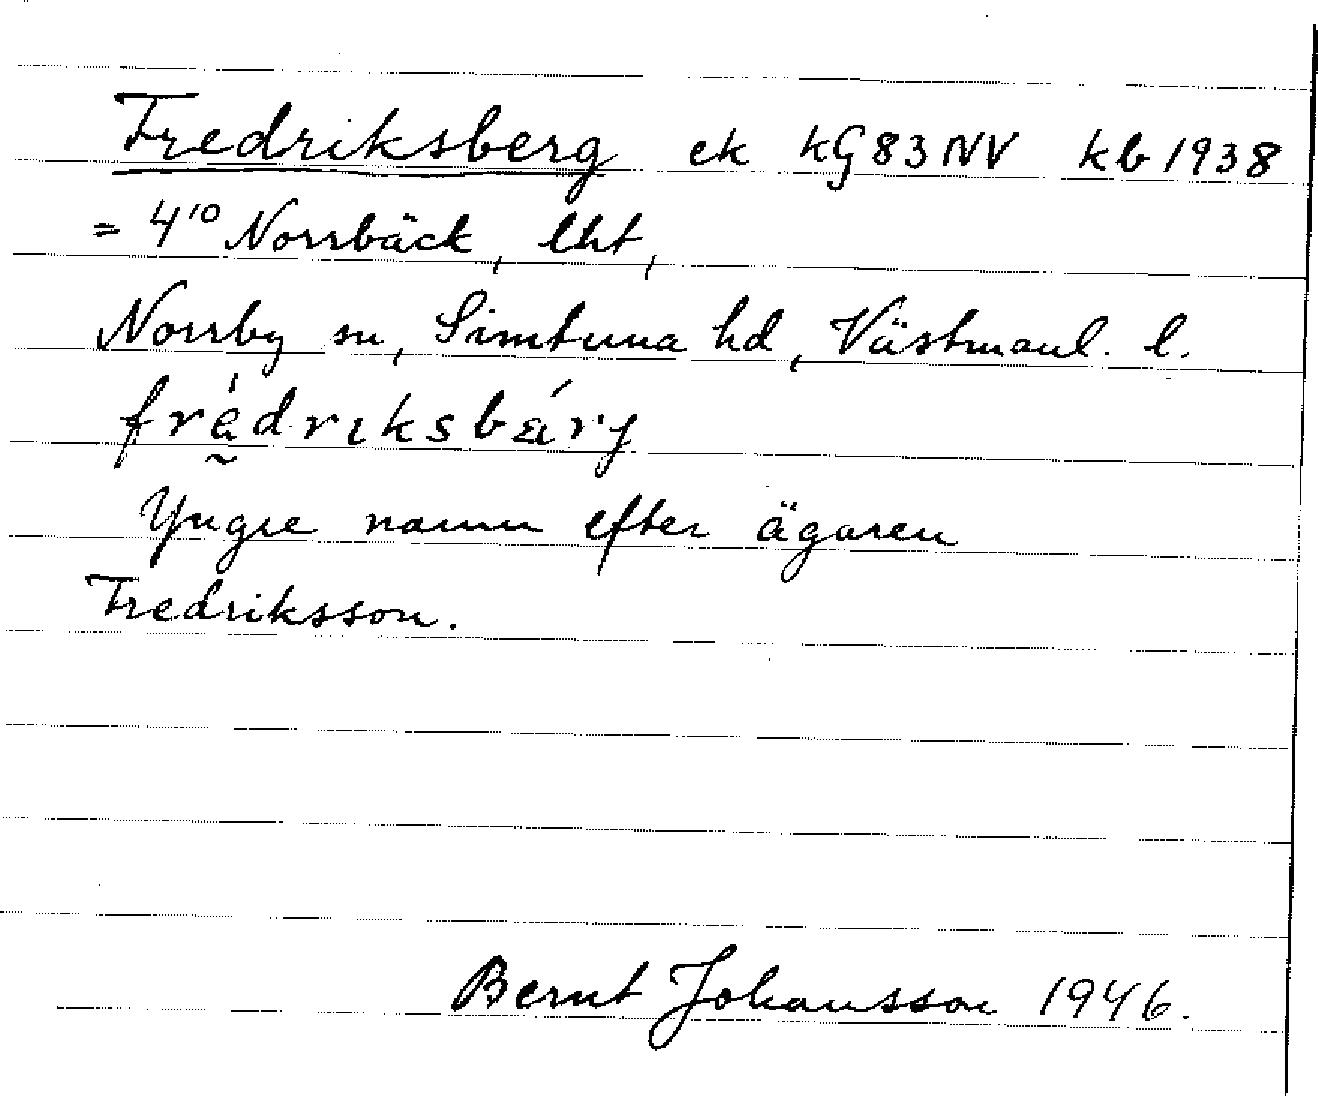 Fredriksberg ek kG83NV kb 1938
= 4¹⁰ Norrbäck, lht,
Norrby sn, Simtuna hd, Västmanl. l.
Yngre namn efter ägaren
Fredriksson.
Bernt Johansson 1946.